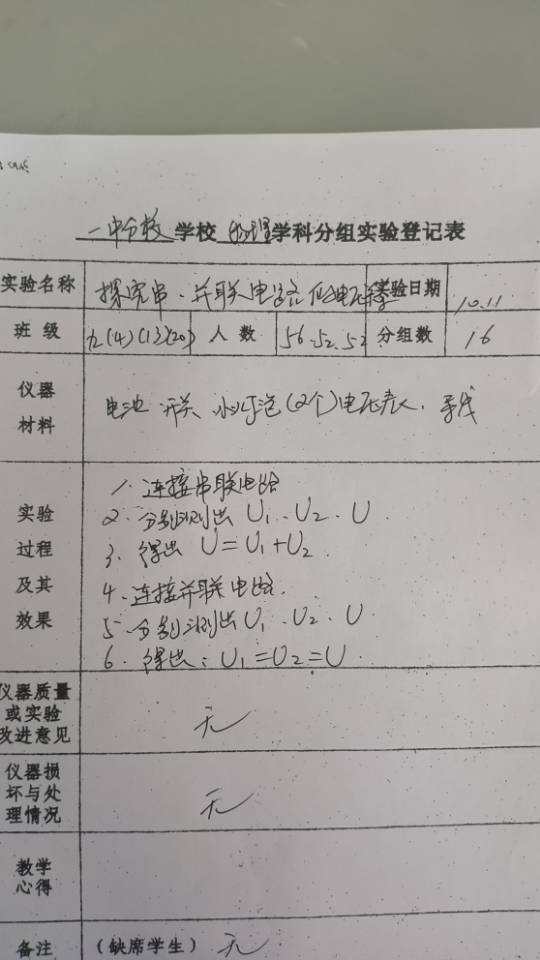 一中分校 学校 物理 学科分组实验登记表
实验名称 探究串、并联电路 电压 实验日期 10.11
班 级 九(4)(13)(20) 人 数 56.52.52 分组数 16
仪器材料 电池 开关 小灯泡(2个) 电压表 导线
实验过程及其效果
1. 连接串联电路
2. 分别测出 U₁、U₂、U
3. 得出 U=U₁+U₂
4. 连接并联电路.
5. 分别测出U₁、U₂、U
6. 得出: U₁=U₂=U.
仪器质量或实验改进意见 无
仪器损坏与处理情况 无
教学心得
备注 (缺席学生) 无